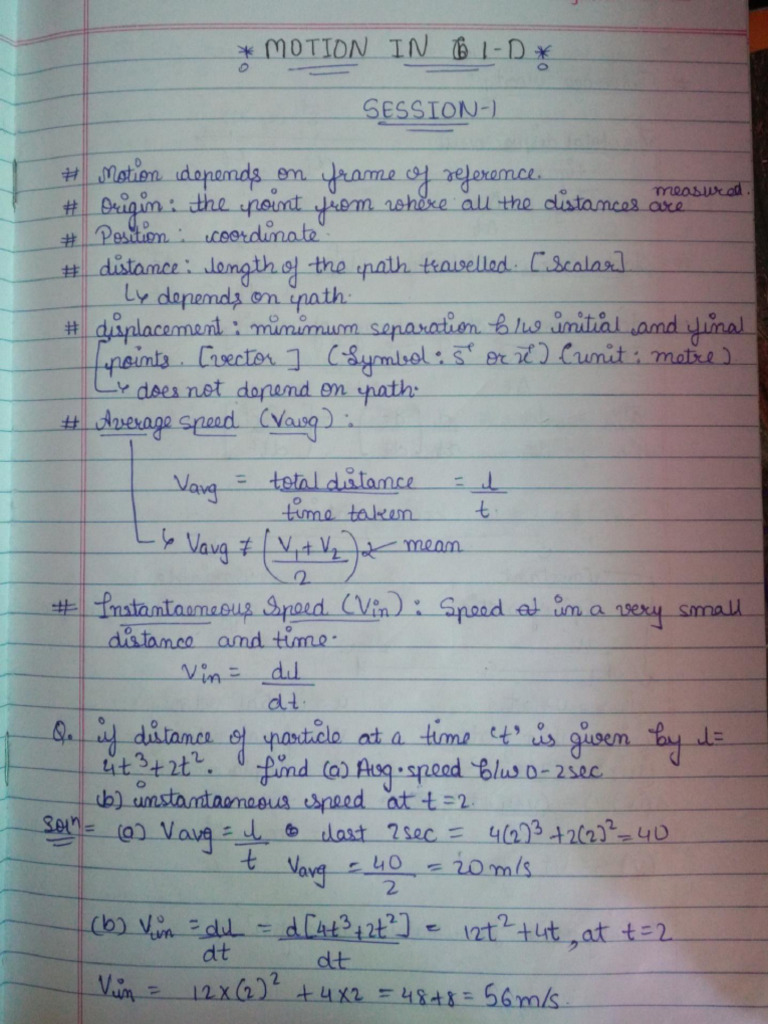 * MOTION IN 1-D *
SESSION-1
# Motion depends on frame of reference.
# Origin: the point from where all the distances are measured.
# Position: coordinate.
# distance: length of the path travelled. [Scalar]
↳ depends on path.
# displacement: minimum separation b/w initial and final
points. [vector] (Symbol: s⃗ or x⃗) (unit: metre)
↳ does not depend on path.
# Average speed (Vavg):
Vavg = total distance / time taken = l / t
↳ Vavg ≠ (V₁+V₂ / 2) ← mean
# Instantaeneous Speed (Vin): Speed in a very small
distance and time.
Vin = dl / dt
Q. if distance of particle at a time 't' is given by l=
4t³+2t². find (a) Avg. speed b/w 0-2sec
(b) instantaeneous speed at t=2.
Solⁿ= (a) Vavg = l / t last 2sec = 4(2)³+2(2)²=40
Vavg = 40 / 2 = 20m/s
(b) Vin = dl / dt = d[4t³+2t²] / dt = 12t²+4t, at t=2
Vin = 12×(2)² + 4×2 = 48+8 = 56m/s.